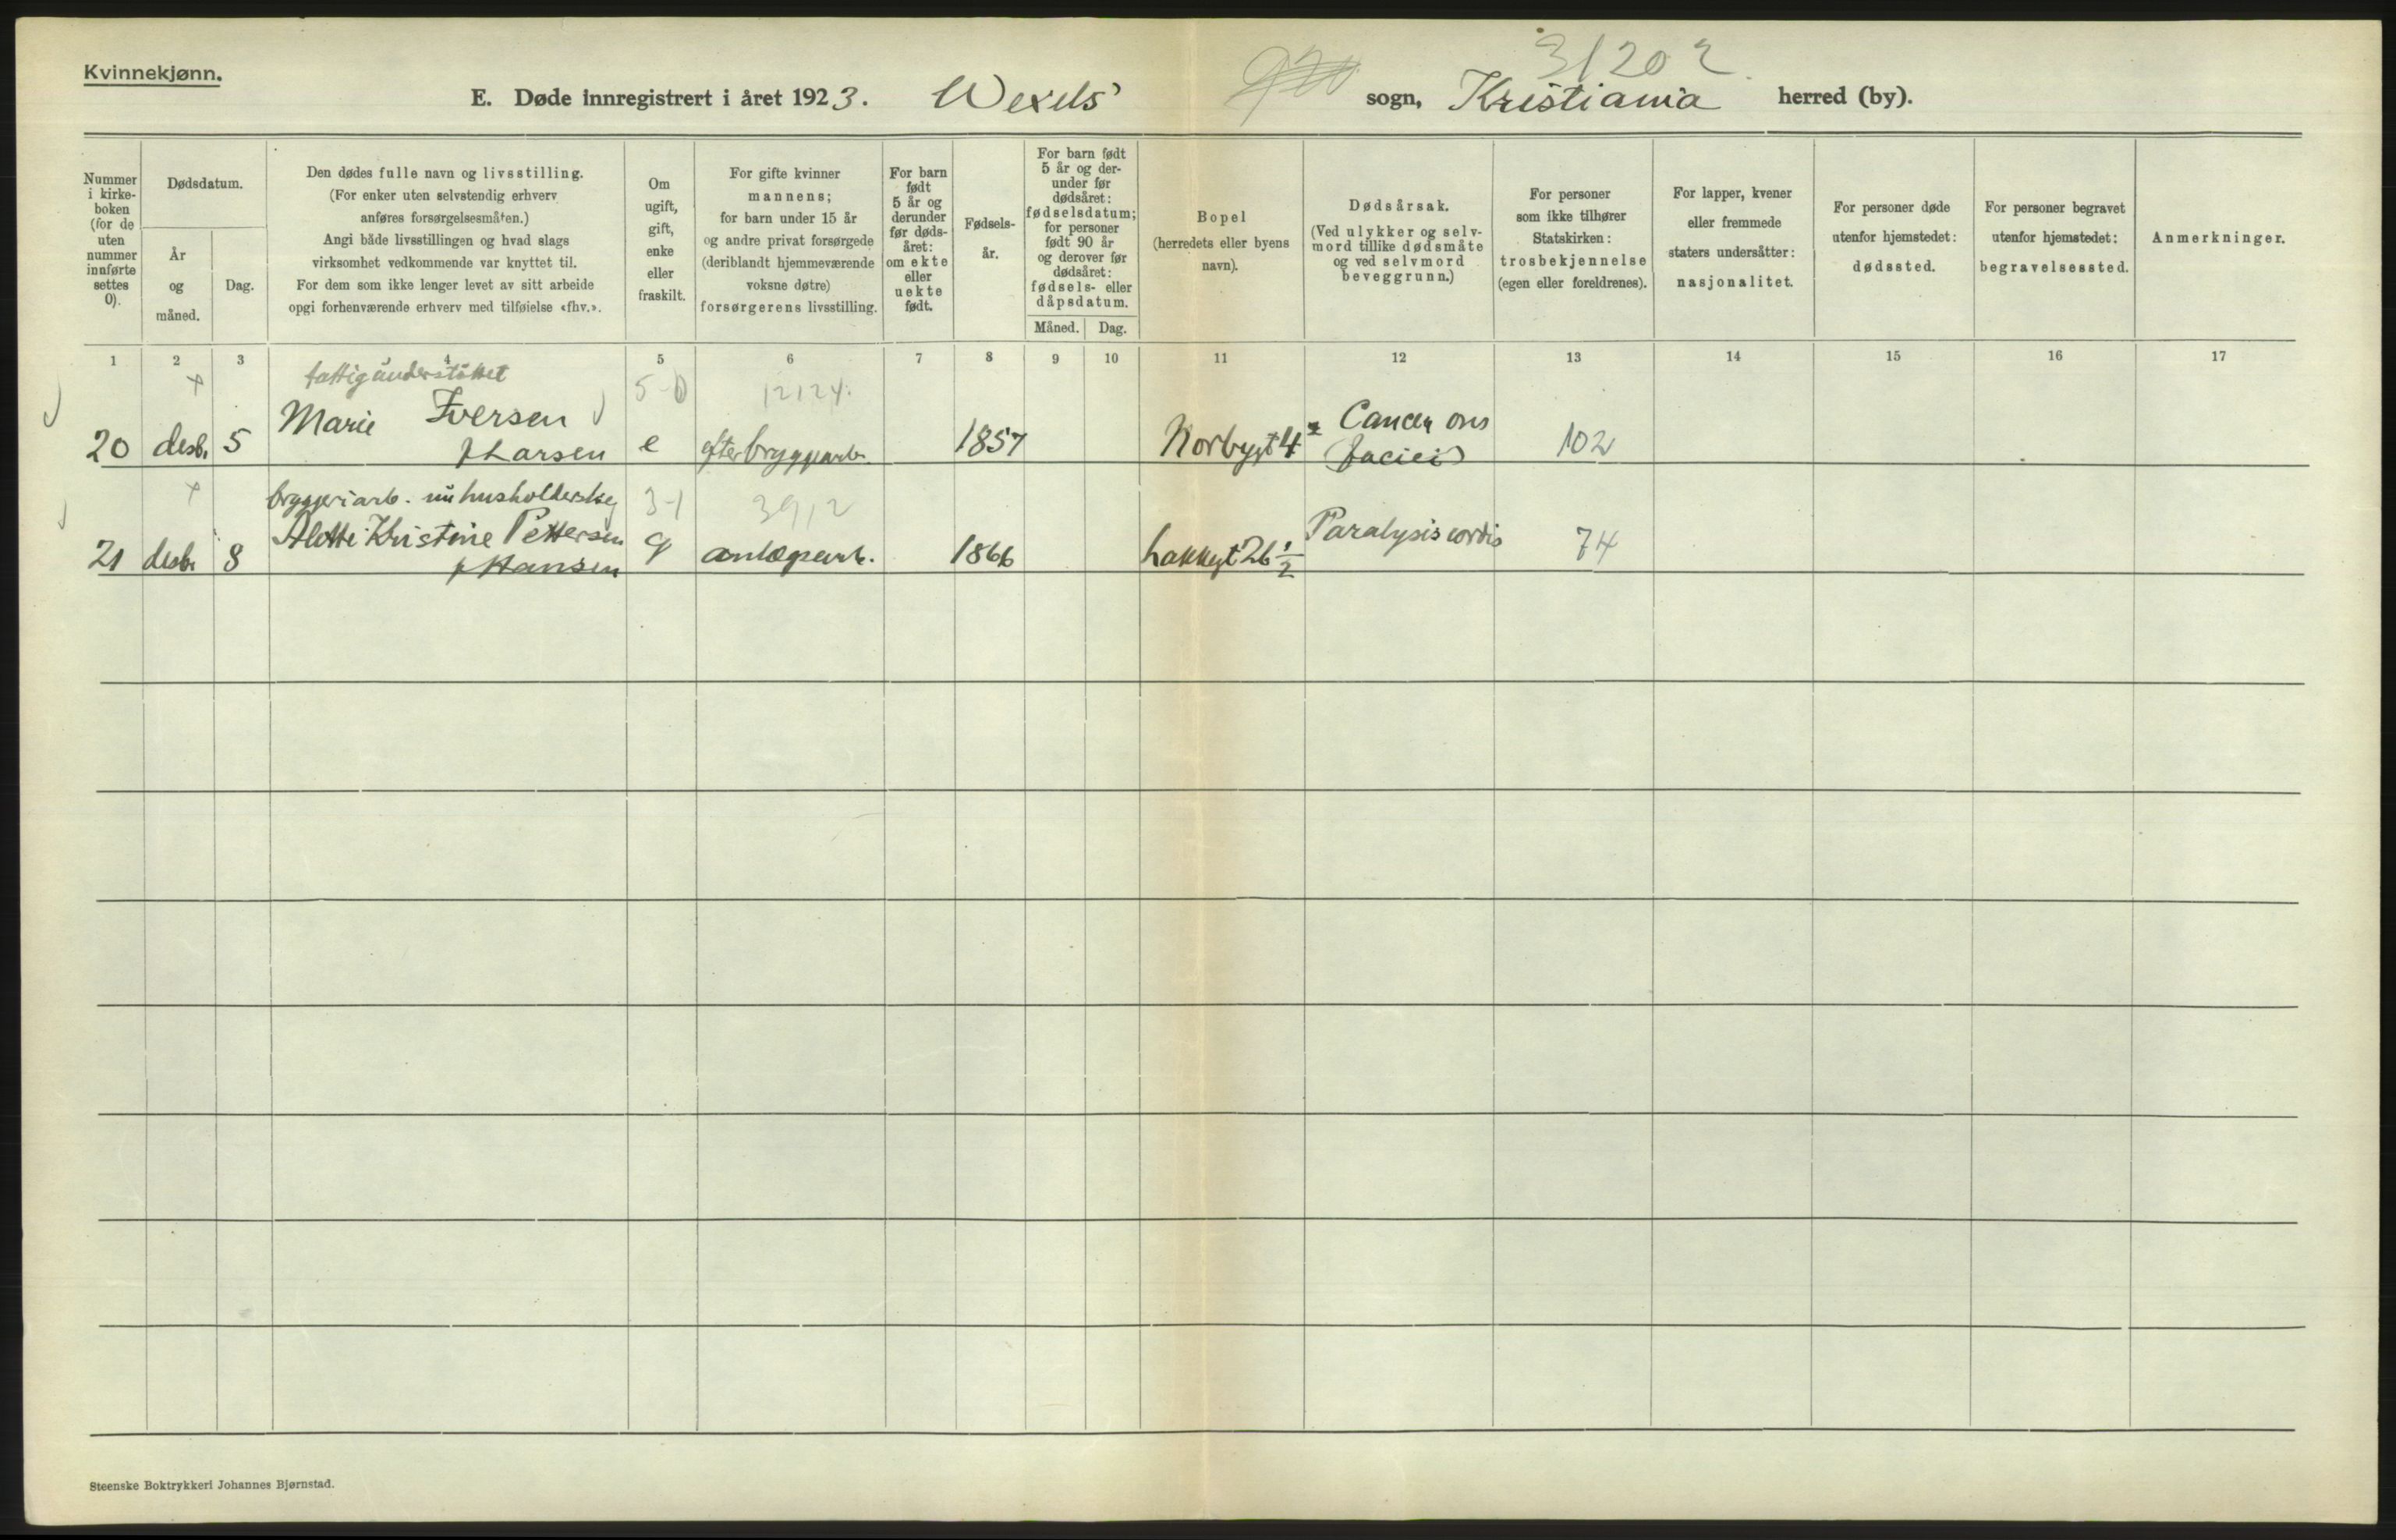 Kvinnekjønn.
E. Døde innregistrert i året 1923. Wexels' sogn, Kristiania herred (by).
3/20 2
Nummer i kirke-boken (for de uten nummer innførte settes 0).
Dødsdatum.
År og måned.
Dag.
Den dødes fulle navn og livsstilling.
(For enker uten selvstendig erhverv
anføres forsørgelsesmåten.)
Angi både livsstillingen og hvad slags
virksomhet vedkommende var knyttet til.
For dem som ikke lenger levet av sitt arbeide
opgi forhenværende erhverv med tilføielse «fhv.».
Om
ugift,
gift,
enke
eller
fraskilt.
For gifte kvinner
mannens;
for barn under 15 år
og andre privat forsørgede
(deriblandt hjemmeværende
voksne døtre)
forsørgerens livsstilling.
For barn
født
5 år og
derunder
før døds-
året:
om ekte
eller
uekte
født.
Fødsels-
år.
For barn født
5 år og der-
under før
dødsåret:
fødselsdatum;
for personer
født 90 år
og derover før
dødsåret:
fødsels- eller
dåpsdatum.
Måned. Dag.
Bopel
(herredets eller byens
navn).
Dødsårsak.
(Ved ulykker og selv-
mord tillike dødsmåte
og ved selvmord
beveggrunn.)
For personer
som ikke tilhører
Statskirken:
trosbekjennelse
(egen eller foreldrenes).
For lapper, kvener
eller fremmede
staters undersåtter:
nasjonalitet.
For personer døde
utenfor hjemstedet:
dødssted.
For personer begravet
utenfor hjemstedet:
begravelsessted.
Anmerkninger.
1 2 3 4 5 6 7 8 9 10 11 12 13 14 15 16 17
fattigunderstöttet 5-0 12124.
Marie Iversen Cancer oris
20 desb. 5 f Larsen e efter bryggarb. 1857 Norbygt 4 (faciei) 102
bryggeriarb. nu husholderske 3-1 3912
Alette Kristine Pettersen Paralysis cordis
21 desb. 8 f Hansen g anlægsarb. 1866 Lakkegt 26 1/2 74
Steenske Boktrykkeri Johannes Bjørnstad.